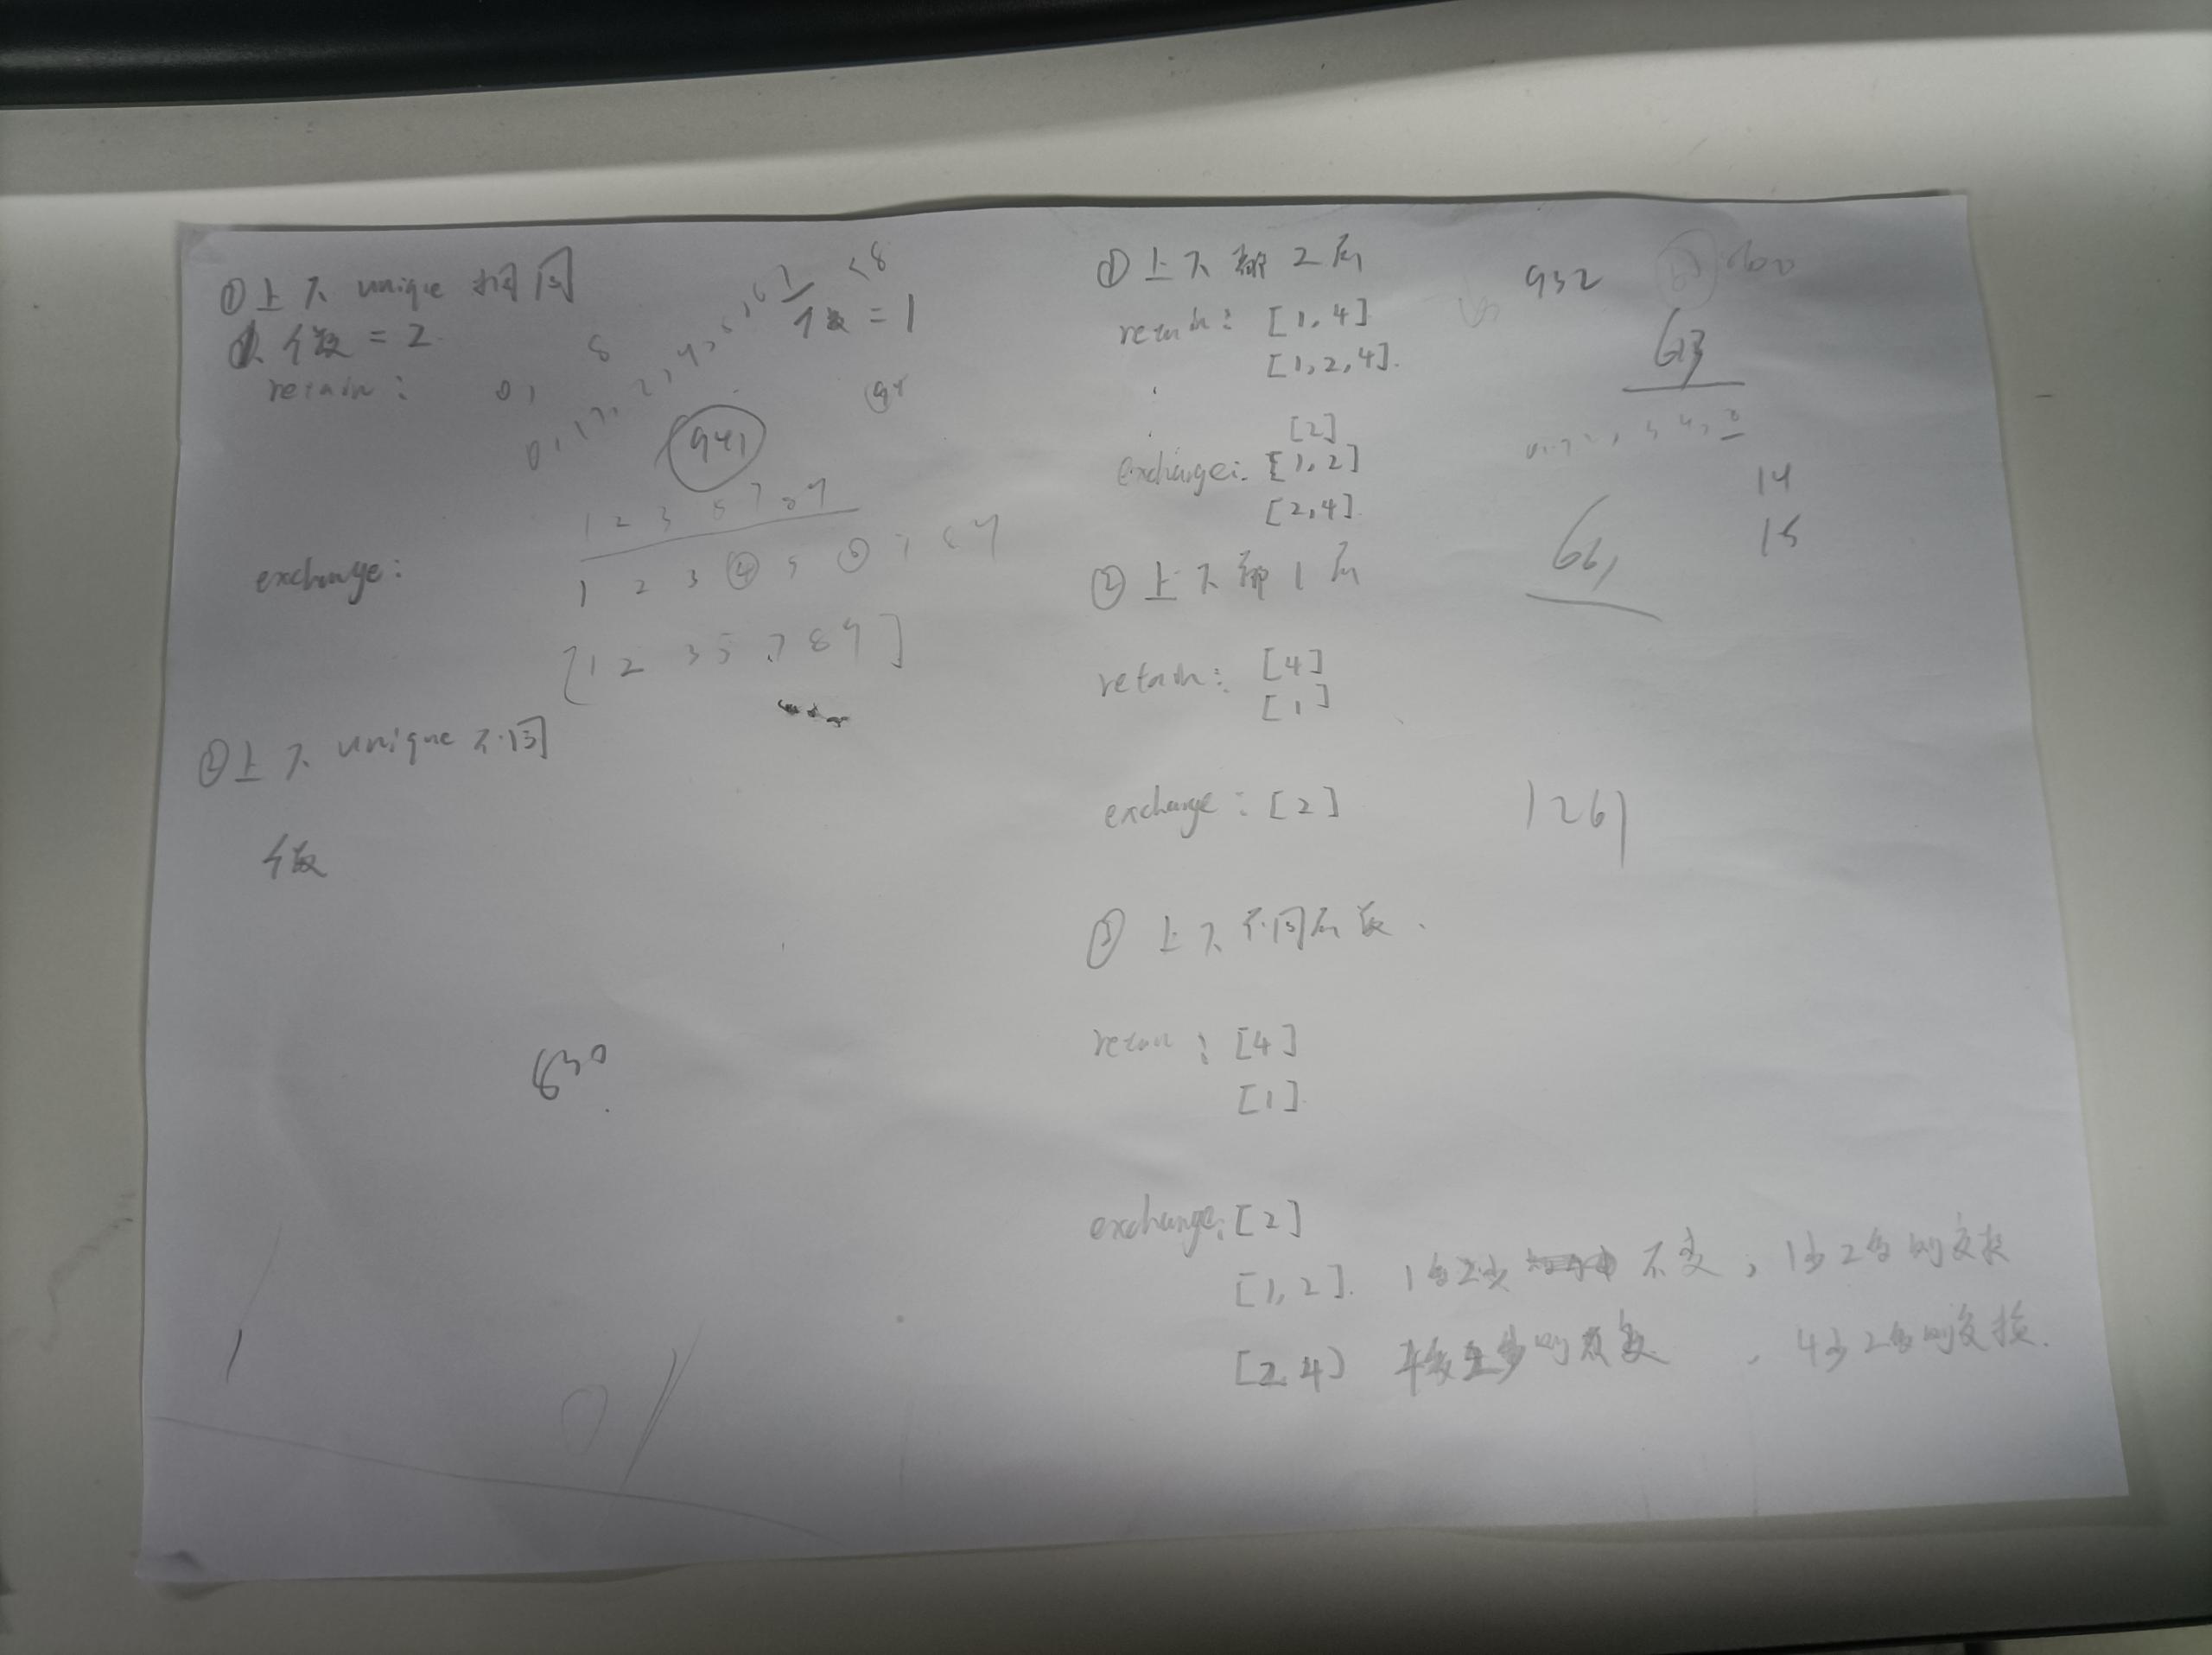 ①上下 unique 相同
个数 = 2
retain: 0,
8
<8
个数 = 1
941
1 2 3 5 7 8 9
exchange:
1 2 3 ④ 5 ⑥ 7 8 9
[1 2 3 5 7 8 9]
②上下 unique 不同
个数
630
①上下都2层
retain: [1,4]
[1,2,4].
[2]
exchange: [1,2]
[2,4].
②上下都1层
retain: [4]
[1]
exchange: [2]
③ 上下不同层数.
retain: [4]
[1].
exchange: [2]
[1,2]. 1多2少 不变, 1少2多则交换
[2,4] , 4少2多则交换.
932
613
14
15
661
1261